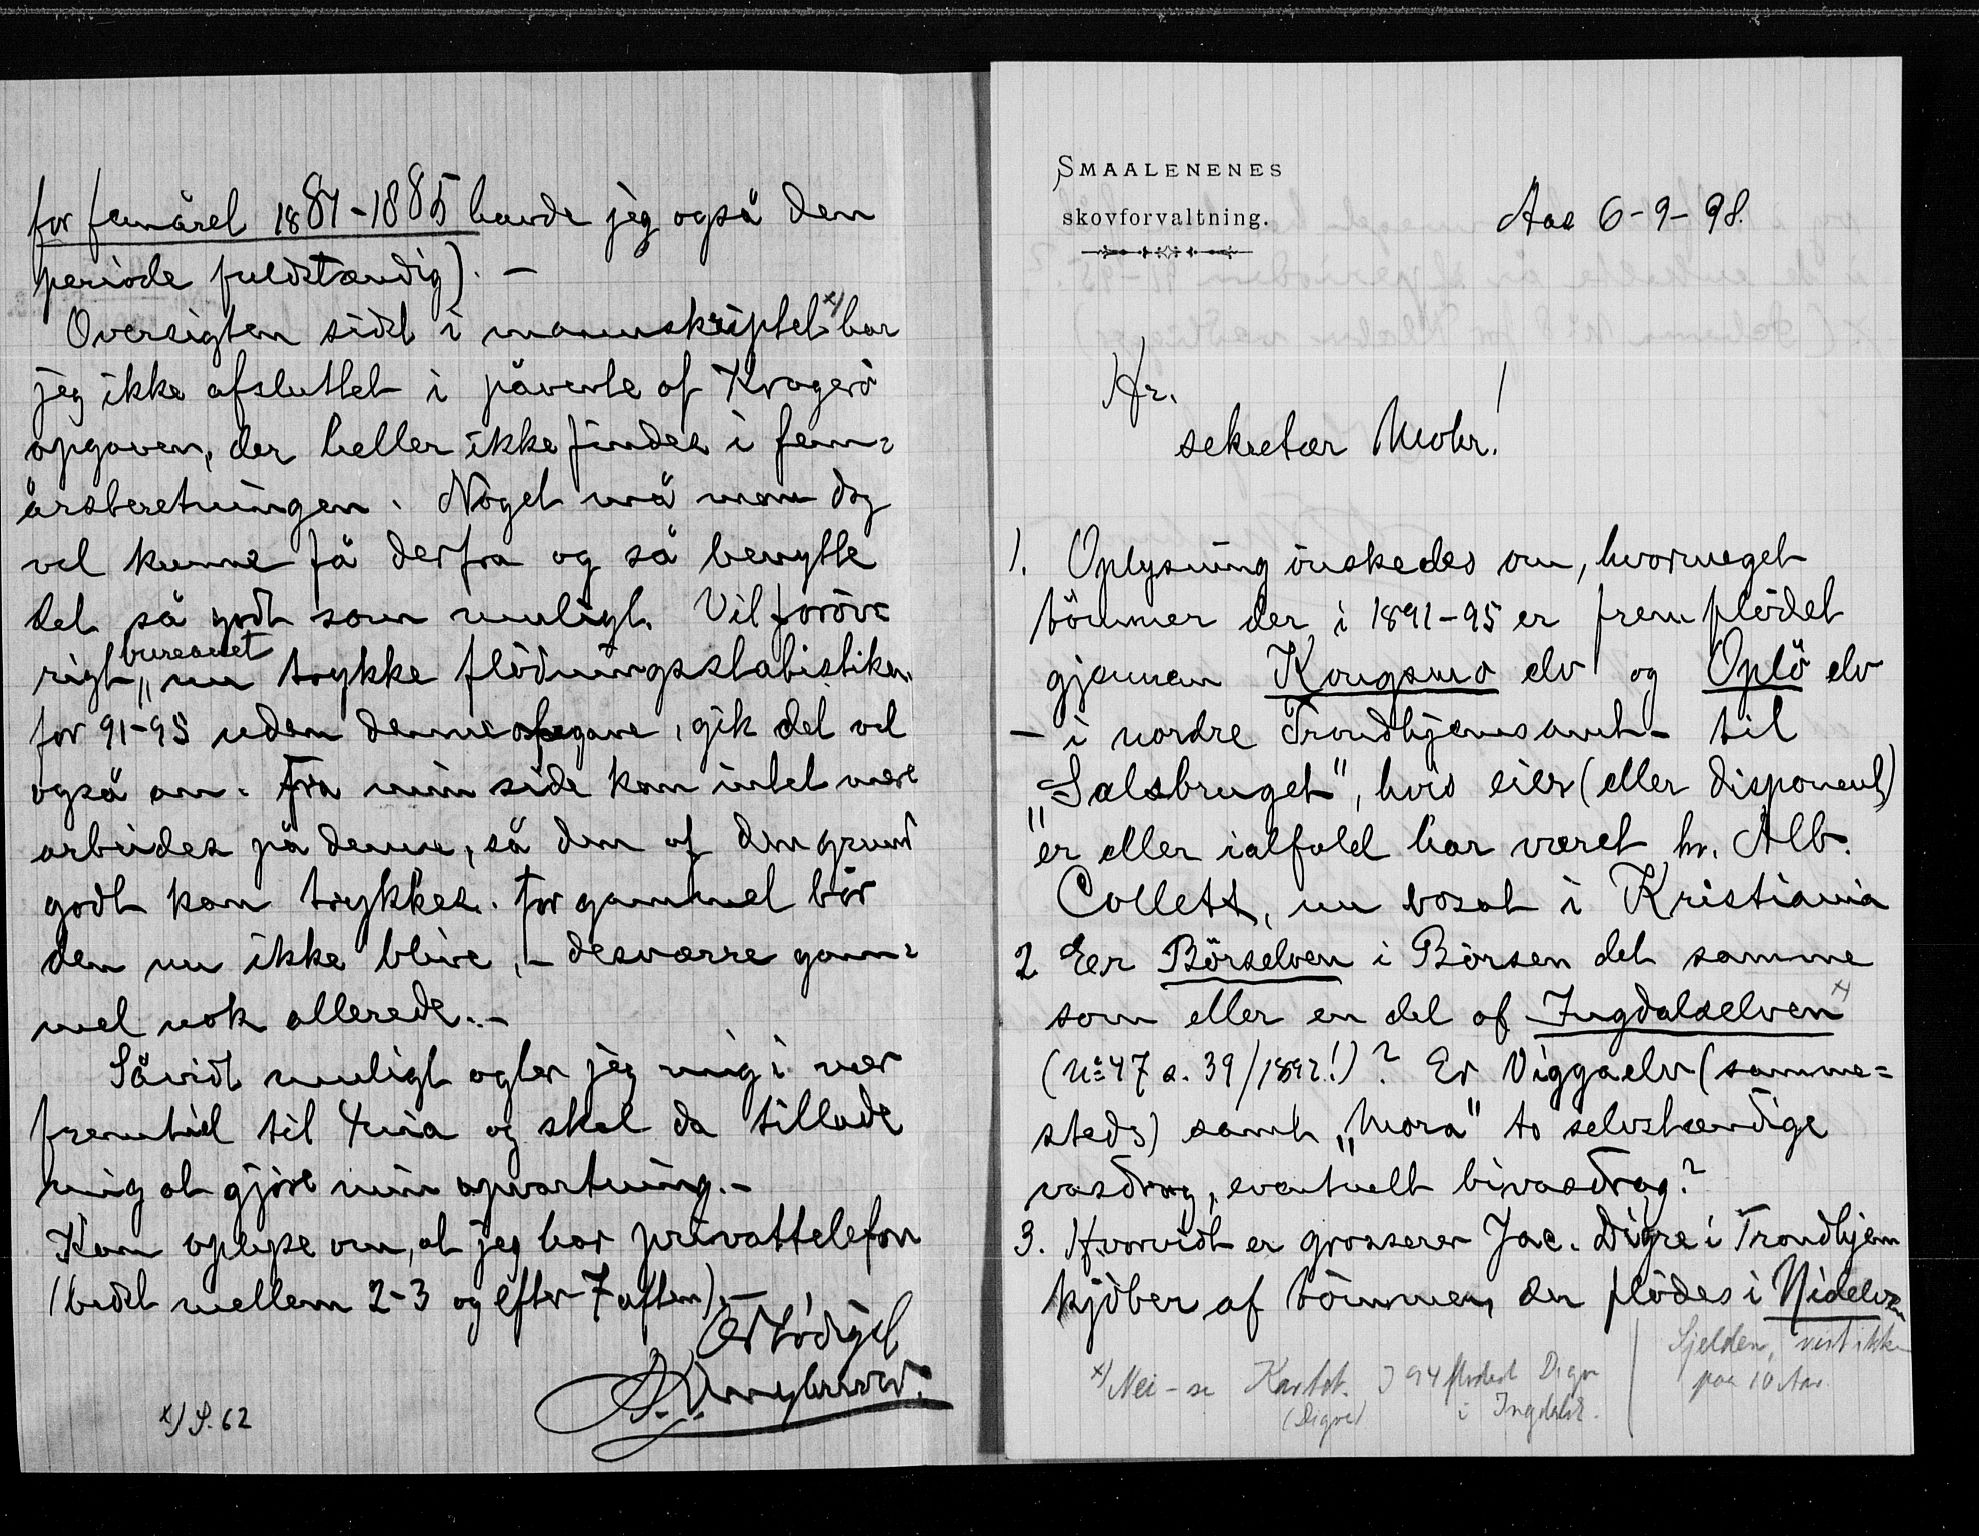 for femåret 1881-1885 havde jeg også den
periode fuldstændig). —
Oversigten sidst i manuskriptet x) har
jeg ikke afsluttet i påvente af Kragerö
opgaven, der heller ikke findes i fem=
årsberetningen. Noget må man dog
vel kunne få derfra og så benytte
det så godt som muligt. Vil foröv=
rigt bureauet nu trykke flödningsstatistiken
for 91-95 uden denne opgave, gik det vel
også an. Fra min side kan intet mere
arbeides på denne, så den af den grund
godt kan trykkes. For gammel bör
den nu ikke blive, — desværre gam=
mel nok allerede. —
Såvidt muligt agter jeg mig i nær
fremtid til Xnia og skal da tillade
mig at gjöre min opvartning. —
Kan oplyse om, at jeg har privattelefon
(bedst mellem 2-3 og efter 7 aften). —
Ærbödigst
x) S. 62
SMAALENENES
skovforvaltning.
Aas 6-9-98.
Hr.
sekretær Mohr!
1. Oplysning önskedes om, hvormeget
tömmer der i 1891-95 er fremflödet
gjennem Kongsmo elv og Oplö elv
— i nordre Trondhjems amt — til
„Salsbruget“, hvis eier (eller disponent)
er eller ialfald har været hr. Alb.
Collett, nu bosat i Kristiania
2 Er Börselven i Börsen det samme
som eller en del af Ingdalselven x)
(No 47 s. 39/1892!)? Er Viggaelv (samme=
steds) samt „Mora“ to selvstændige
vasdrag, eventuelt bivasdrag?
3. Hvorvidt er grosserer Jac. Digre i Trondhjem
kjöber af tömmer, der flödes i Nidelven
x) Nei - se Kartot. I 94 flödet Digre
(Digre) i Ingdalselv.
Sjelden, vist ikke
paa 10 Aar.